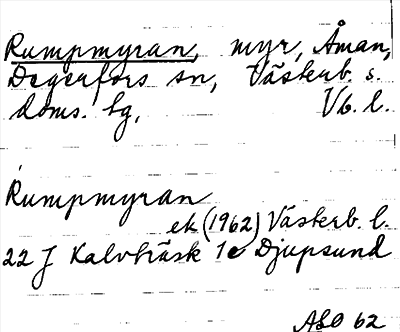 Rumpmyran, myr, Åman,
Degerfors sn, Västerb. s.
doms. tg, Vb. l.
Rumpmyran
ek (1962) Västerb. l.
22 J Kalvträsk 1e Djupsund
ASO 62